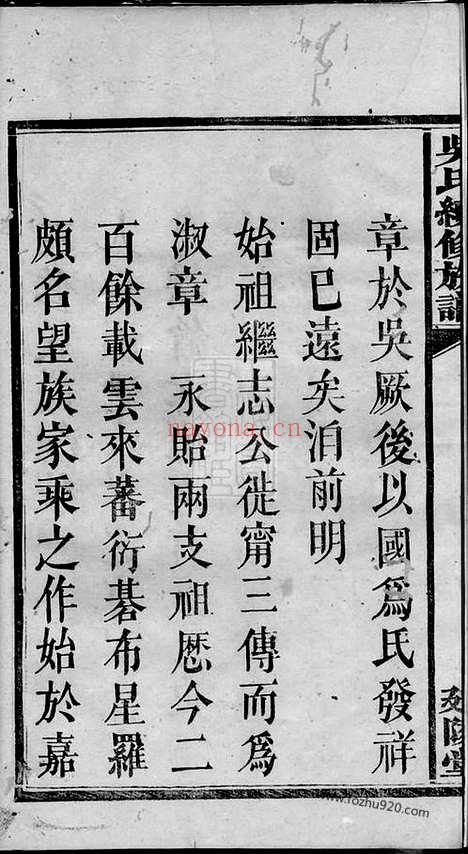 章於吳厥後以國爲氏發祥
固已遠矣洎前明
始祖繼志公徙甯三傳而爲
淑章　永貽兩支祖歷今二
百餘載雲來蕃衍碁布星羅
頗名望族家乘之作始於嘉
吳氏續修族譜
延陵堂
nayona.cn
www.fozhu920.com